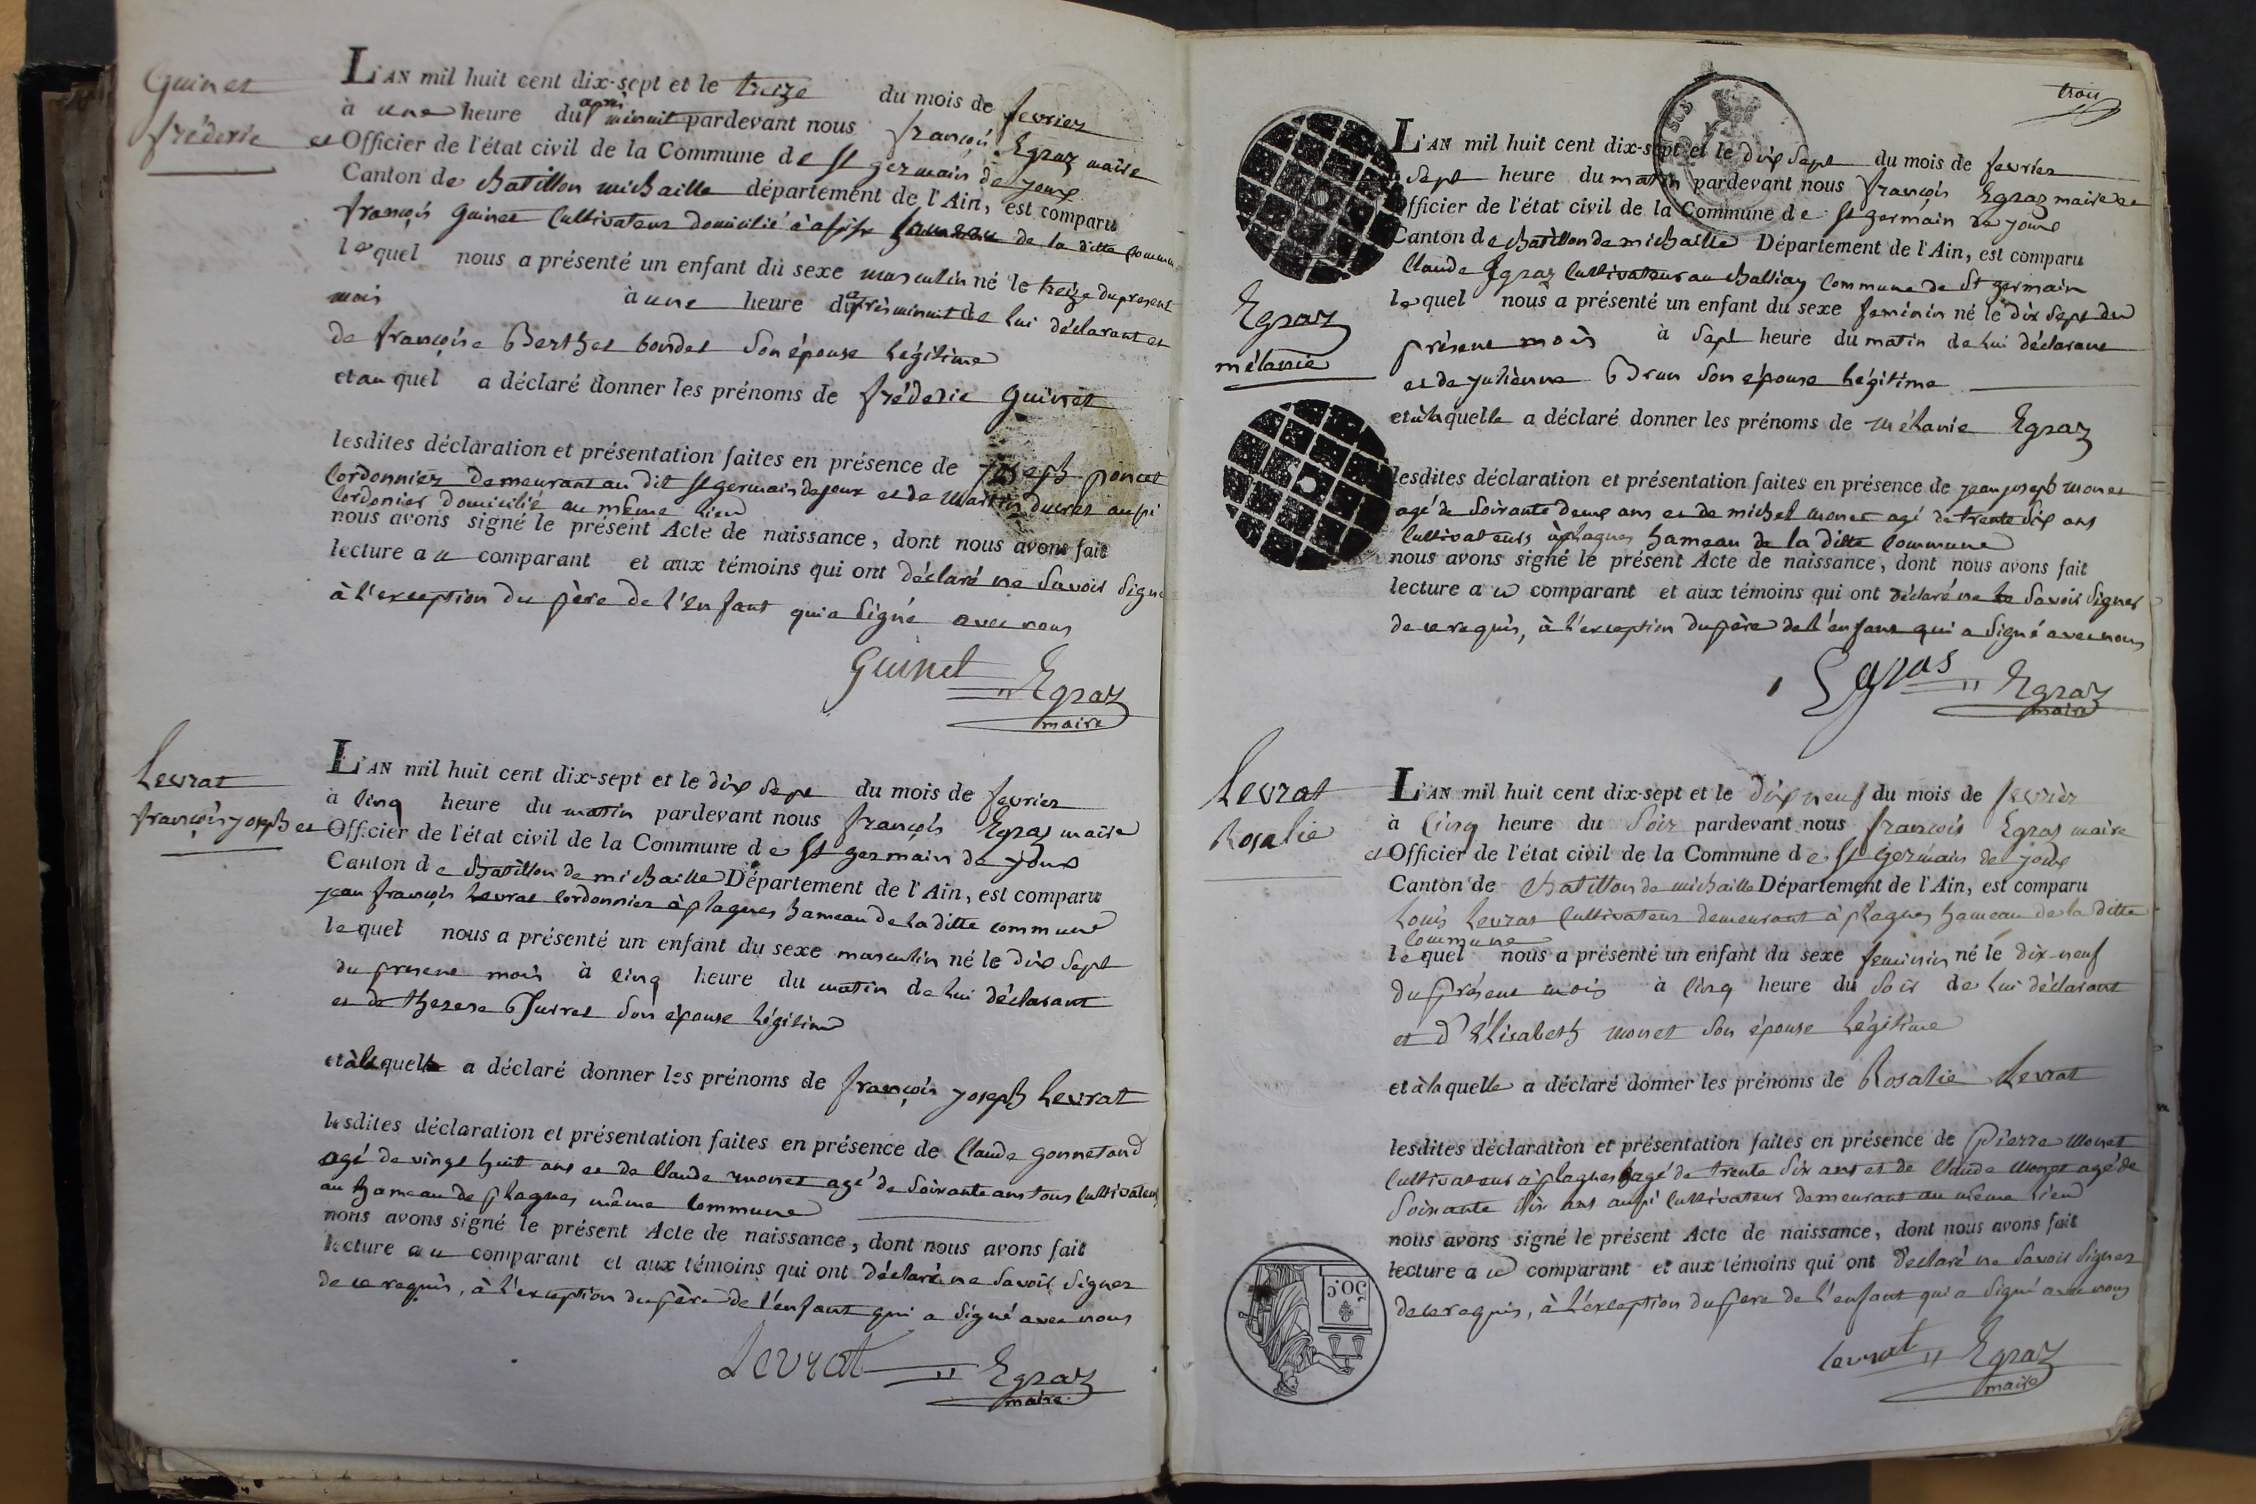 Guinet
fréderic
L'AN mil huit cent dix-sept et le treize du mois de fevrier
à une heure du après minuit pardevant nous françois Egraz maire
et Officier de l'état civil de la Commune de St germain de joux
Canton de chatillon michaille département de l'Ain, est comparu
françois Guinet Cultivateur domicilié à hameau de la ditte Commune
lequel nous a présenté un enfant du sexe masculin né le treize du present
mois à une heure du après minuit de lui déclarant et
de françoise Berthet bondet son épouse légitime
et au quel a déclaré donner les prénoms de fréderic Guinet
lesdites déclaration et présentation faites en présence de joseph poncet
Cordonnier demeurant au dit St germain de joux et de Martin ducret aussi
Cordonier domicilié au même lieu
nous avons signé le présent Acte de naissance, dont nous avons fait
lecture au comparant et aux témoins qui ont déclaré ne Savoir Signer
à l'exception du père de l'enfant qui a Signé avec nous
Guinet Egraz
maire
Levrat
françois joseph
L'AN mil huit cent dix-sept et le dix Sept du mois de fevrier
à Cinq heure du matin pardevant nous françois Egraz maire
et Officier de l'état civil de la Commune de St germain de joux
Canton de chatillon de michaille Département de l'Ain, est comparu
jean françois Levrat Cordonnier à plagnes hameau de la ditte commune
lequel nous a présenté un enfant du sexe masculin né le dix Sept
du present mois à Cinq heure du matin de lui déclarant
et de therese son épouse légitime
et à laquelle a déclaré donner les prénoms de françois joseph Levrat
lesdites déclaration et présentation faites en présence de Claude
agé de vingt huit ans et de Claude monet agé de Soixante ans tous Cultivateurs
au hameau de plagnes même Commune
nous avons signé le présent Acte de naissance, dont nous avons fait
lecture au comparant et aux témoins qui ont déclaré ne Savoir Signer
de ce requis, à l'exception du père de l'enfant qui a Signé avec nous
Levrat Egraz
maire
trois
Egraz
mélanie
L'AN mil huit cent dix-sept et le dix Sept du mois de fevrier
à Sept heure du matin pardevant nous françois Egraz maire et
Officier de l'état civil de la Commune de St germain de joux
Canton de chatillon de michaille Département de l'Ain, est comparu
Claude Egraz Cultivateur au Challiay Commune de St germain
lequel nous a présenté un enfant du sexe feminin né le dix Sept du
présent mois à Sept heure du matin de lui déclarant
et de julienne Brun son épouse légitime
et à laquelle a déclaré donner les prénoms de mélanie Egraz
lesdites déclaration et présentation faites en présence de jean joseph monet
agé de Soixante deux ans et de michel monet agé de trente Six ans
Cultivateurs à plagnes hameau de la ditte Commune
nous avons signé le présent Acte de naissance, dont nous avons fait
lecture au comparant et aux témoins qui ont déclaré ne Savoir Signer
de ce requis, à l'exception du père de l'enfant qui a Signé avec nous
Egras Egraz
maire
Levrat
Rosalie
L'AN mil huit cent dix-sept et le dix neuf du mois de fevrier
à Cinq heure du Soir pardevant nous françois Egraz maire
et Officier de l'état civil de la Commune de St germain de joux
Canton de Chatillon de michaille Département de l'Ain, est comparu
Louis Levrat Cultivateur demeurant à plagnes hameau de la ditte
Commune
lequel nous a présenté un enfant du sexe feminin né le dix-neuf
du présent mois à Cinq heure du Soir de lui déclarant
et d'Elisabeth monet son épouse légitime
et à laquelle a déclaré donner les prénoms de Rosalie Levrat
lesdites déclaration et présentation faites en présence de Pierre Monet
Cultivateur à plagnes agé de trente Six ans et de Claude Monet agé de
Soixante dix ans aussi Cultivateur demeurant au même lieu
nous avons signé le présent Acte de naissance, dont nous avons fait
lecture au comparant et aux témoins qui ont déclaré ne Savoir Signer
de ce requis, à l'exception du pere de l'enfant qui a Signé avec nous
50C
Levrat Egraz
maire